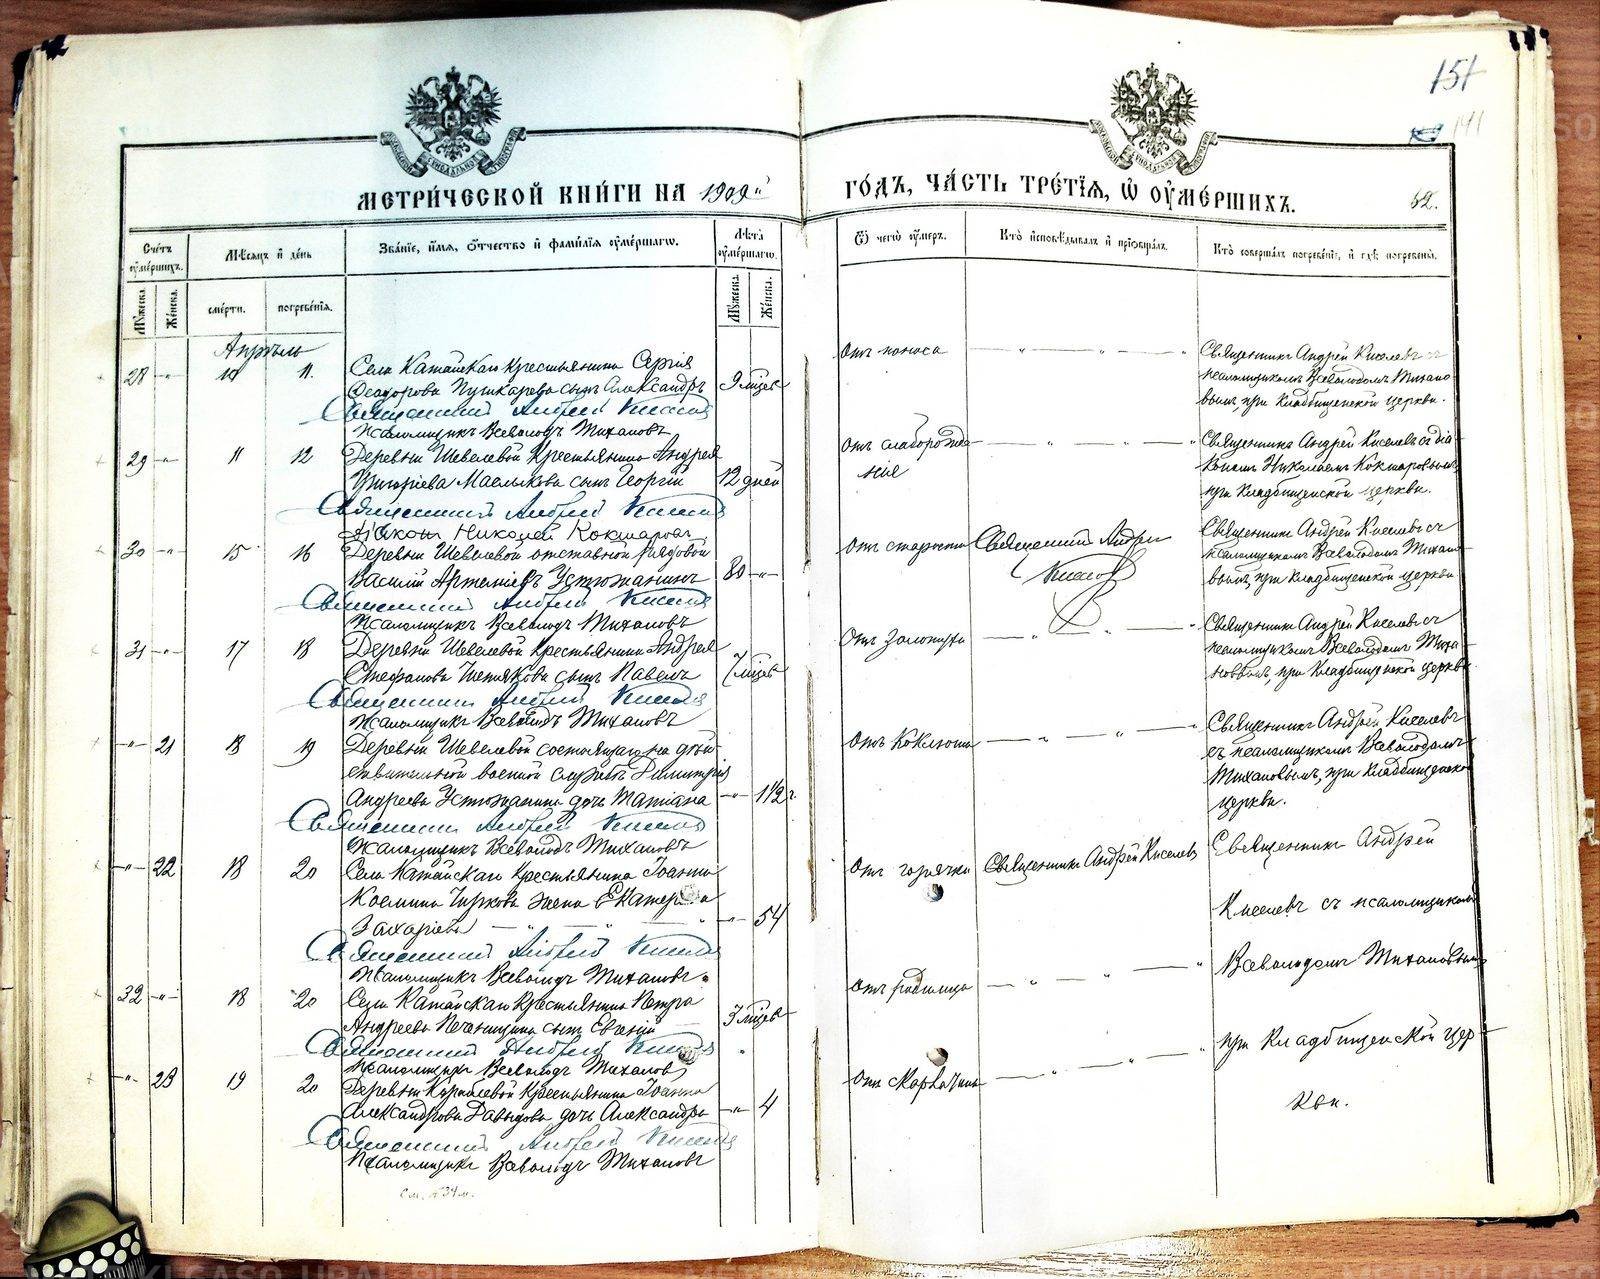 151
141
МЕТРИ́ЧЕСКОЙ КНИ́ГИ НА 1909й ГО́ДЪ, ЧА́СТЬ ТРЕ́ТІЯ, Ѡ ОУМЕ́РШИХЪ.
52.
Сче́тъ оуме́ршихъ.
Му́жеска.
Же́нска.
Мѣ́сяцъ и де́нь
сме́рти.
погребе́нія.
Зва́ніе, и́мя, о́тчество и фами́лія оуме́ршагѡ.
Лѣ́та оуме́ршагѡ.
Му́жеска.
Же́нска.
Ѿ чегѡ̀ оу́меръ.
Кто̀ и҆сповѣ́дывалъ и прїѡбща́лъ.
Кто̀ соверша́лъ погребе́нїе, и гдѣ̀ погребены̀.
Апрѣль
28 -"- 10 11.
Села Катайскаго крестьянина Сергія
Ѳеодорова Пушкарева сынъ Александръ
9 мцев
Священникъ Андрей Киселев
Псаломщикъ Всеволодъ Тихановъ
Отъ поноса
Священникъ Андрей Киселевъ съ
псаломщикомъ Всеволодомъ Тихано
вымъ, при кладбищенской церкви.
29 -"- 11 12
Деревни Шевелевой крестьянина Андрея
Григоріева сынъ Георгій
12 дней
Священникъ Андрей Киселев
Діаконъ Николай Кокшаровъ
Отъ слаборожде
нія
Священникъ Андрей Киселевъ съ діа
кономъ Николаемъ Кокшаровымъ,
при кладбищенской церкви.
30 -"- 15 16
Деревни Шевелевой отставной рядовой
Василій Артеміевъ Устюжанинъ
80 -"-
Священникъ Андрей Киселев
Псаломщикъ Всеволодъ Тихановъ
Отъ старости
Священникъ Андрей
Киселев
Священникъ Андрей Киселевъ съ
псаломщикомъ Всеволодомъ Тихано
вымъ, при кладбищенской церкви
31 -"- 17 18
Деревни Шевелевой крестьянина Андрея
Стефанова сынъ Павелъ
7 мцев
Священникъ Андрей Киселев
Псаломщикъ Всеволодъ Тихановъ
Отъ золотухи
Священникъ Андрей Киселевъ съ
псаломщикомъ Всеволодомъ Тиха
новымъ, при кладбищенской церкви
-"- 21 18 19
Деревни Шевелевой состоящаго на дѣй
ствительной военной службѣ Димитрія
Андреева Устюжанина дочь Татіана
-"- 1 1/2 г.
Священникъ Андрей Киселев
Псаломщикъ Всеволодъ Тихановъ
Отъ коклюша
Священникъ Андрей Киселевъ
съ псаломщикомъ Всеволодомъ
Тихановымъ, при кладбищенской
церкви.
-"- 22 18 20
Села Катайскаго крестьянина Іоанна
Космина Чиркова жена Екатерина
Захаріева
-"- 54
Священникъ Андрей Киселев
Псаломщикъ Всеволодъ Тихановъ.
Отъ горячки
Священникъ Андрей Киселевъ
Священникъ Андрей
Киселевъ съ псаломщикомъ
Всеволодомъ Тихановымъ
при кладбищенской цер
кви.
32 -"- 18 20
Села Катайскаго крестьянина Петра
Андреева Печенкина сынъ Евгеній
3 мцев
Священникъ Андрей Киселев
Псаломщикъ Всеволодъ Тихановъ
Отъ родимца
-"- 23 19 20
Деревни крестьянина Іоанна
Александрова Давыдова дочь Александра
-"- 4
Священникъ Андрей Киселев
Псаломщикъ Всеволодъ Тихановъ
Отъ скарлатины